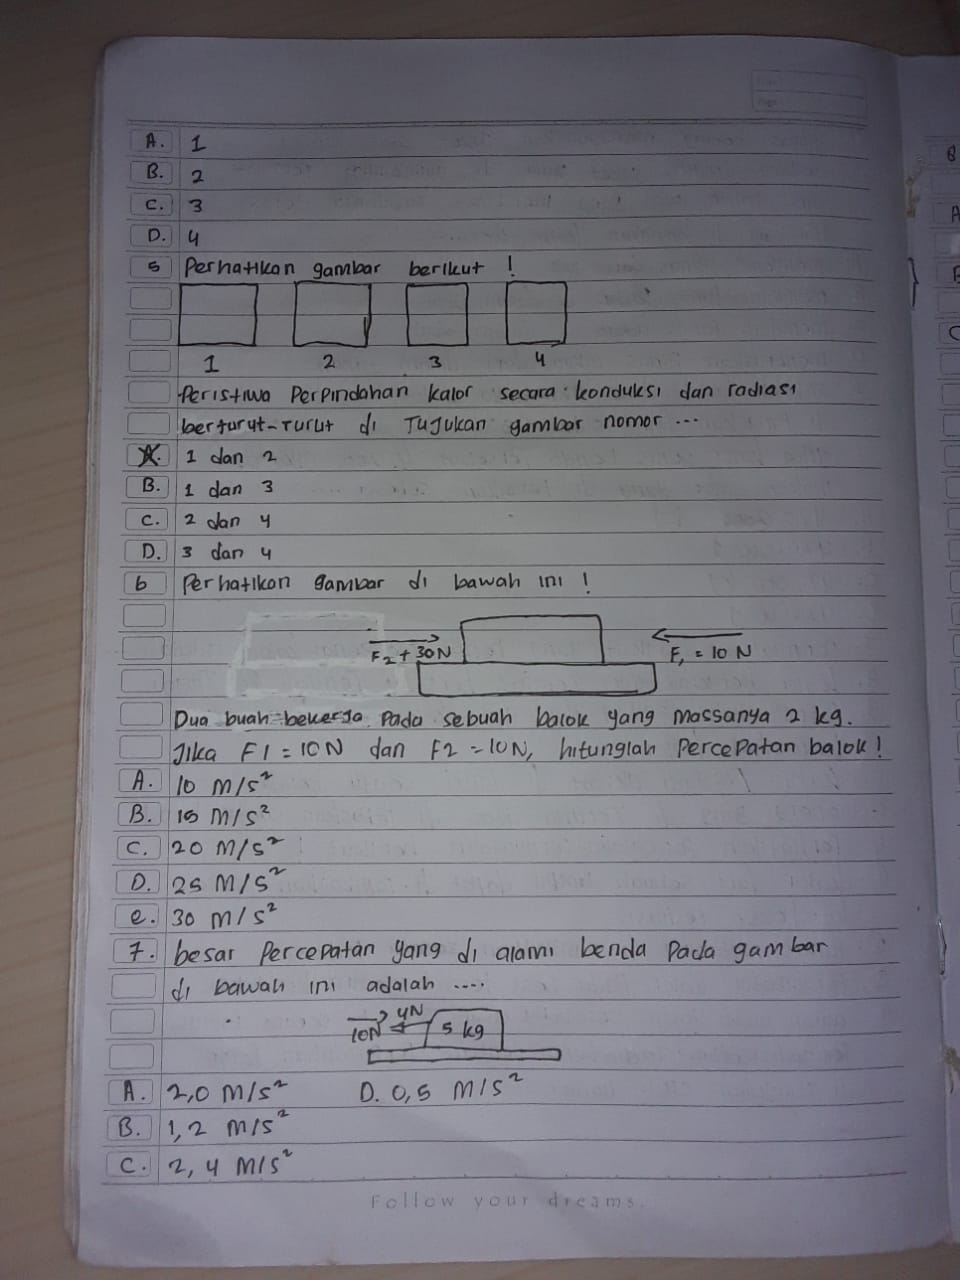 A. 1
B. 2
C. 3
D. 4
5 Perhatikan gambar berikut !
1 2 3 4
Peristiwa Perpindahan kalor secara konduksi dan radiasi
berturut-rurut di Tujukan gambar nomor ...
A. 1 dan 2
B. 1 dan 3
C. 2 dan 4
D. 3 dan 4
6 Perhatikan gambar di bawah ini !
F2 + 30N F1 = 10 N
Dua buah bekerja Pada sebuah balok yang Massanya 2 kg.
Jika F1 = 10N dan F2 = 10N, hitunglah Percepatan balok !
A. 10 M/s²
B. 15 M/s²
C. 20 M/s²
D. 25 M/s²
e. 30 M/s²
7. besar Percepatan yang di alami benda Pada gambar
di bawah ini adalah ....
10N 4N 5 kg
A. 2,0 M/s² D. 0,5 M/s²
B. 1,2 M/s²
C. 2,4 M/s²
Follow your dreams.